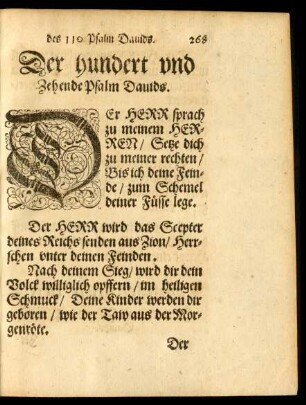 des 110 Psalm Dauids. 268
Der hundert vnd
Zehende Psalm Dauids.
DEr HERR sprach
zu meinem HER-
REN/ Setze dich
zu meiner rechten/
Bis ich deine Fein-
de/ zum Schemel
deiner Füsse lege.
Der HERR wird das Scepter
deines Reichs senden aus Zion/ Herr-
schen vnter deinen Feinden.
Nach deinem Sieg/ wird dir dein
Volck williglich opffern/ im heiligen
Schmuck/ Deine Kinder werden dir
geboren/ wie der Taw aus der Mor-
genröte.
Der